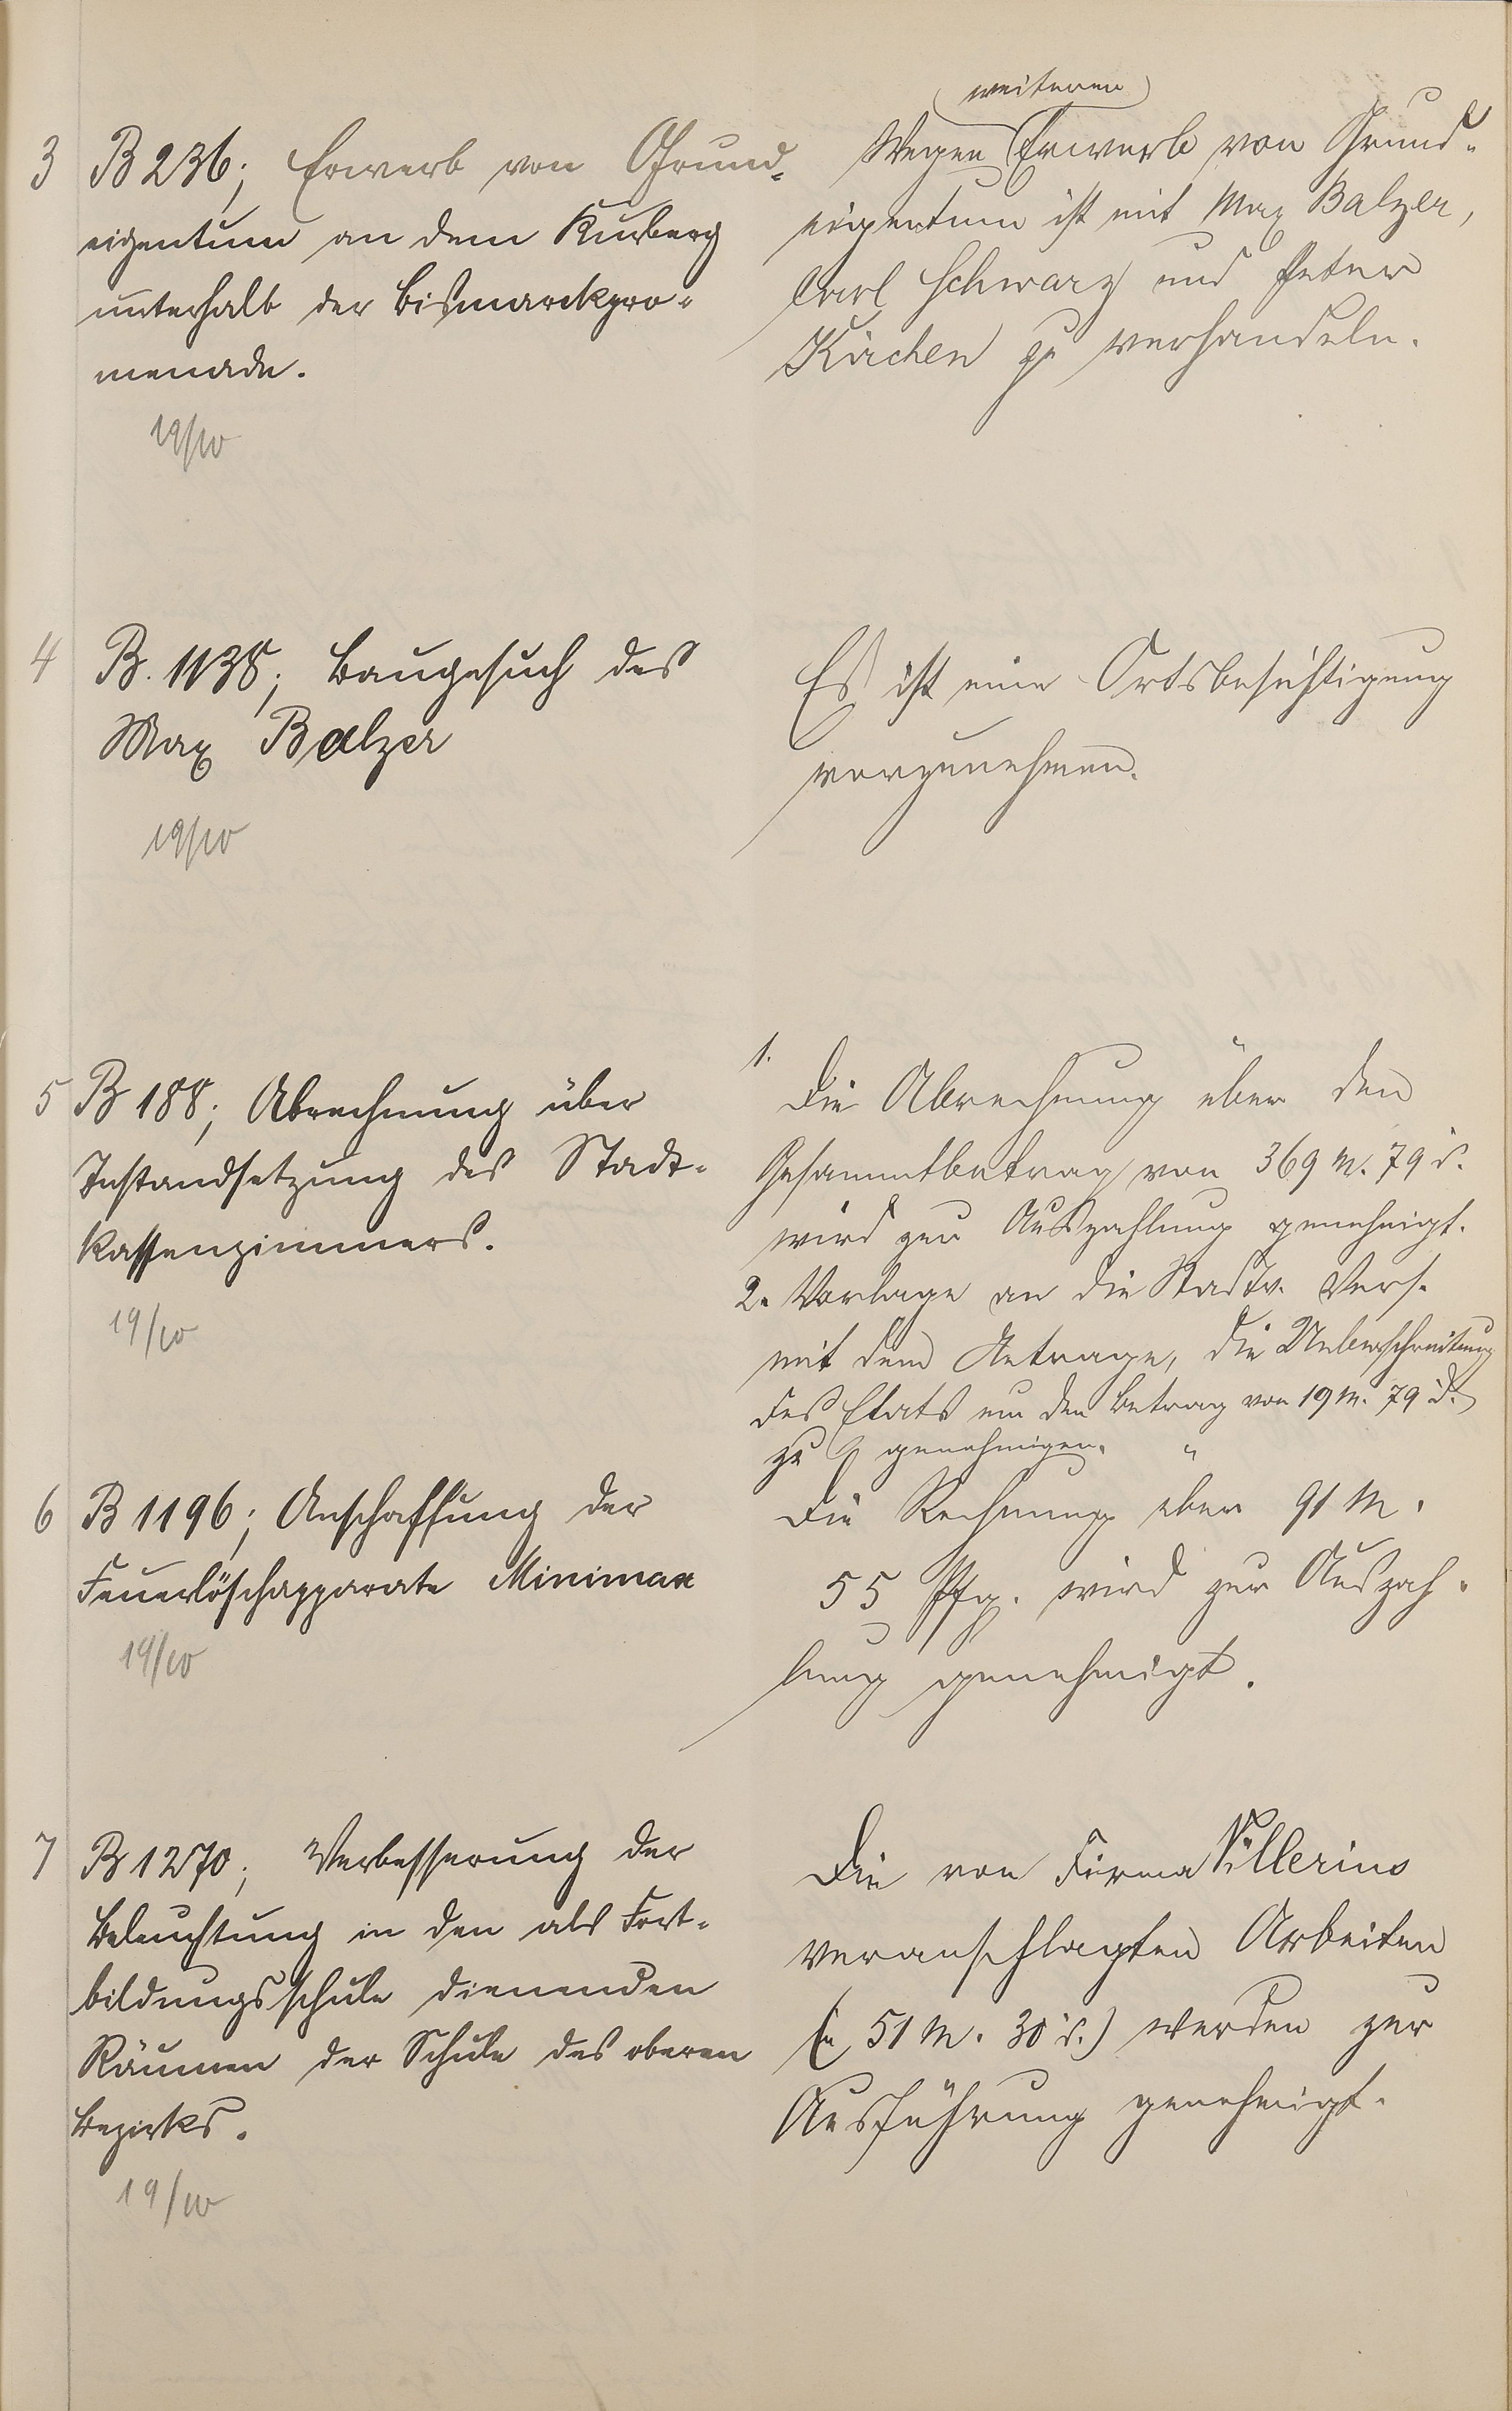 3 B 236; Erwerb von Grund-
eigentum an dem Kurberg
unterhalb der Bismarckpro-
menade.
19/10
weiteren
Wegen Erwerb von Grund-
eigentum ist mit Max Balzer,
Carl Schwarz und Peter
Kirchen zu verhandeln.
4 B. 1138; Baugesuch des
Max Balzer
19/10
Es ist eine Ortsbesichtigung
vorzunehmen.
5 B 188; Abrechnung über
Instandsetzung des Stadt-
kassenzimmers.
19/10
1.
Die Abrechnung über den
Gesammtbetrag von 369 M. 79 d.
wird zur Auszahlung genehmigt.
2. Vorlage an die Stadtv. Vers.
mit dem Antrage, die Ueberschreitung
des Etats um den Betrag von 19 M. 79 d.
zu genehmigen.
6 B 1196; Anschaffung der
Feuerlöschapparate Minimax
19/10
Die Rechnung über 91 M.
55 Pfg. wird zur Auszah-
lung genehmigt.
7 B 1270; Verbesserung der
Beleuchtung in den als Fort-
bildungsschule dienenden
Räumen der Schule des oberen
Bezirks.
19/10
Die von Firma
veranschlagten Arbeiten
( 51 M. 30 d.) werden zur
Ausführung genehmigt.